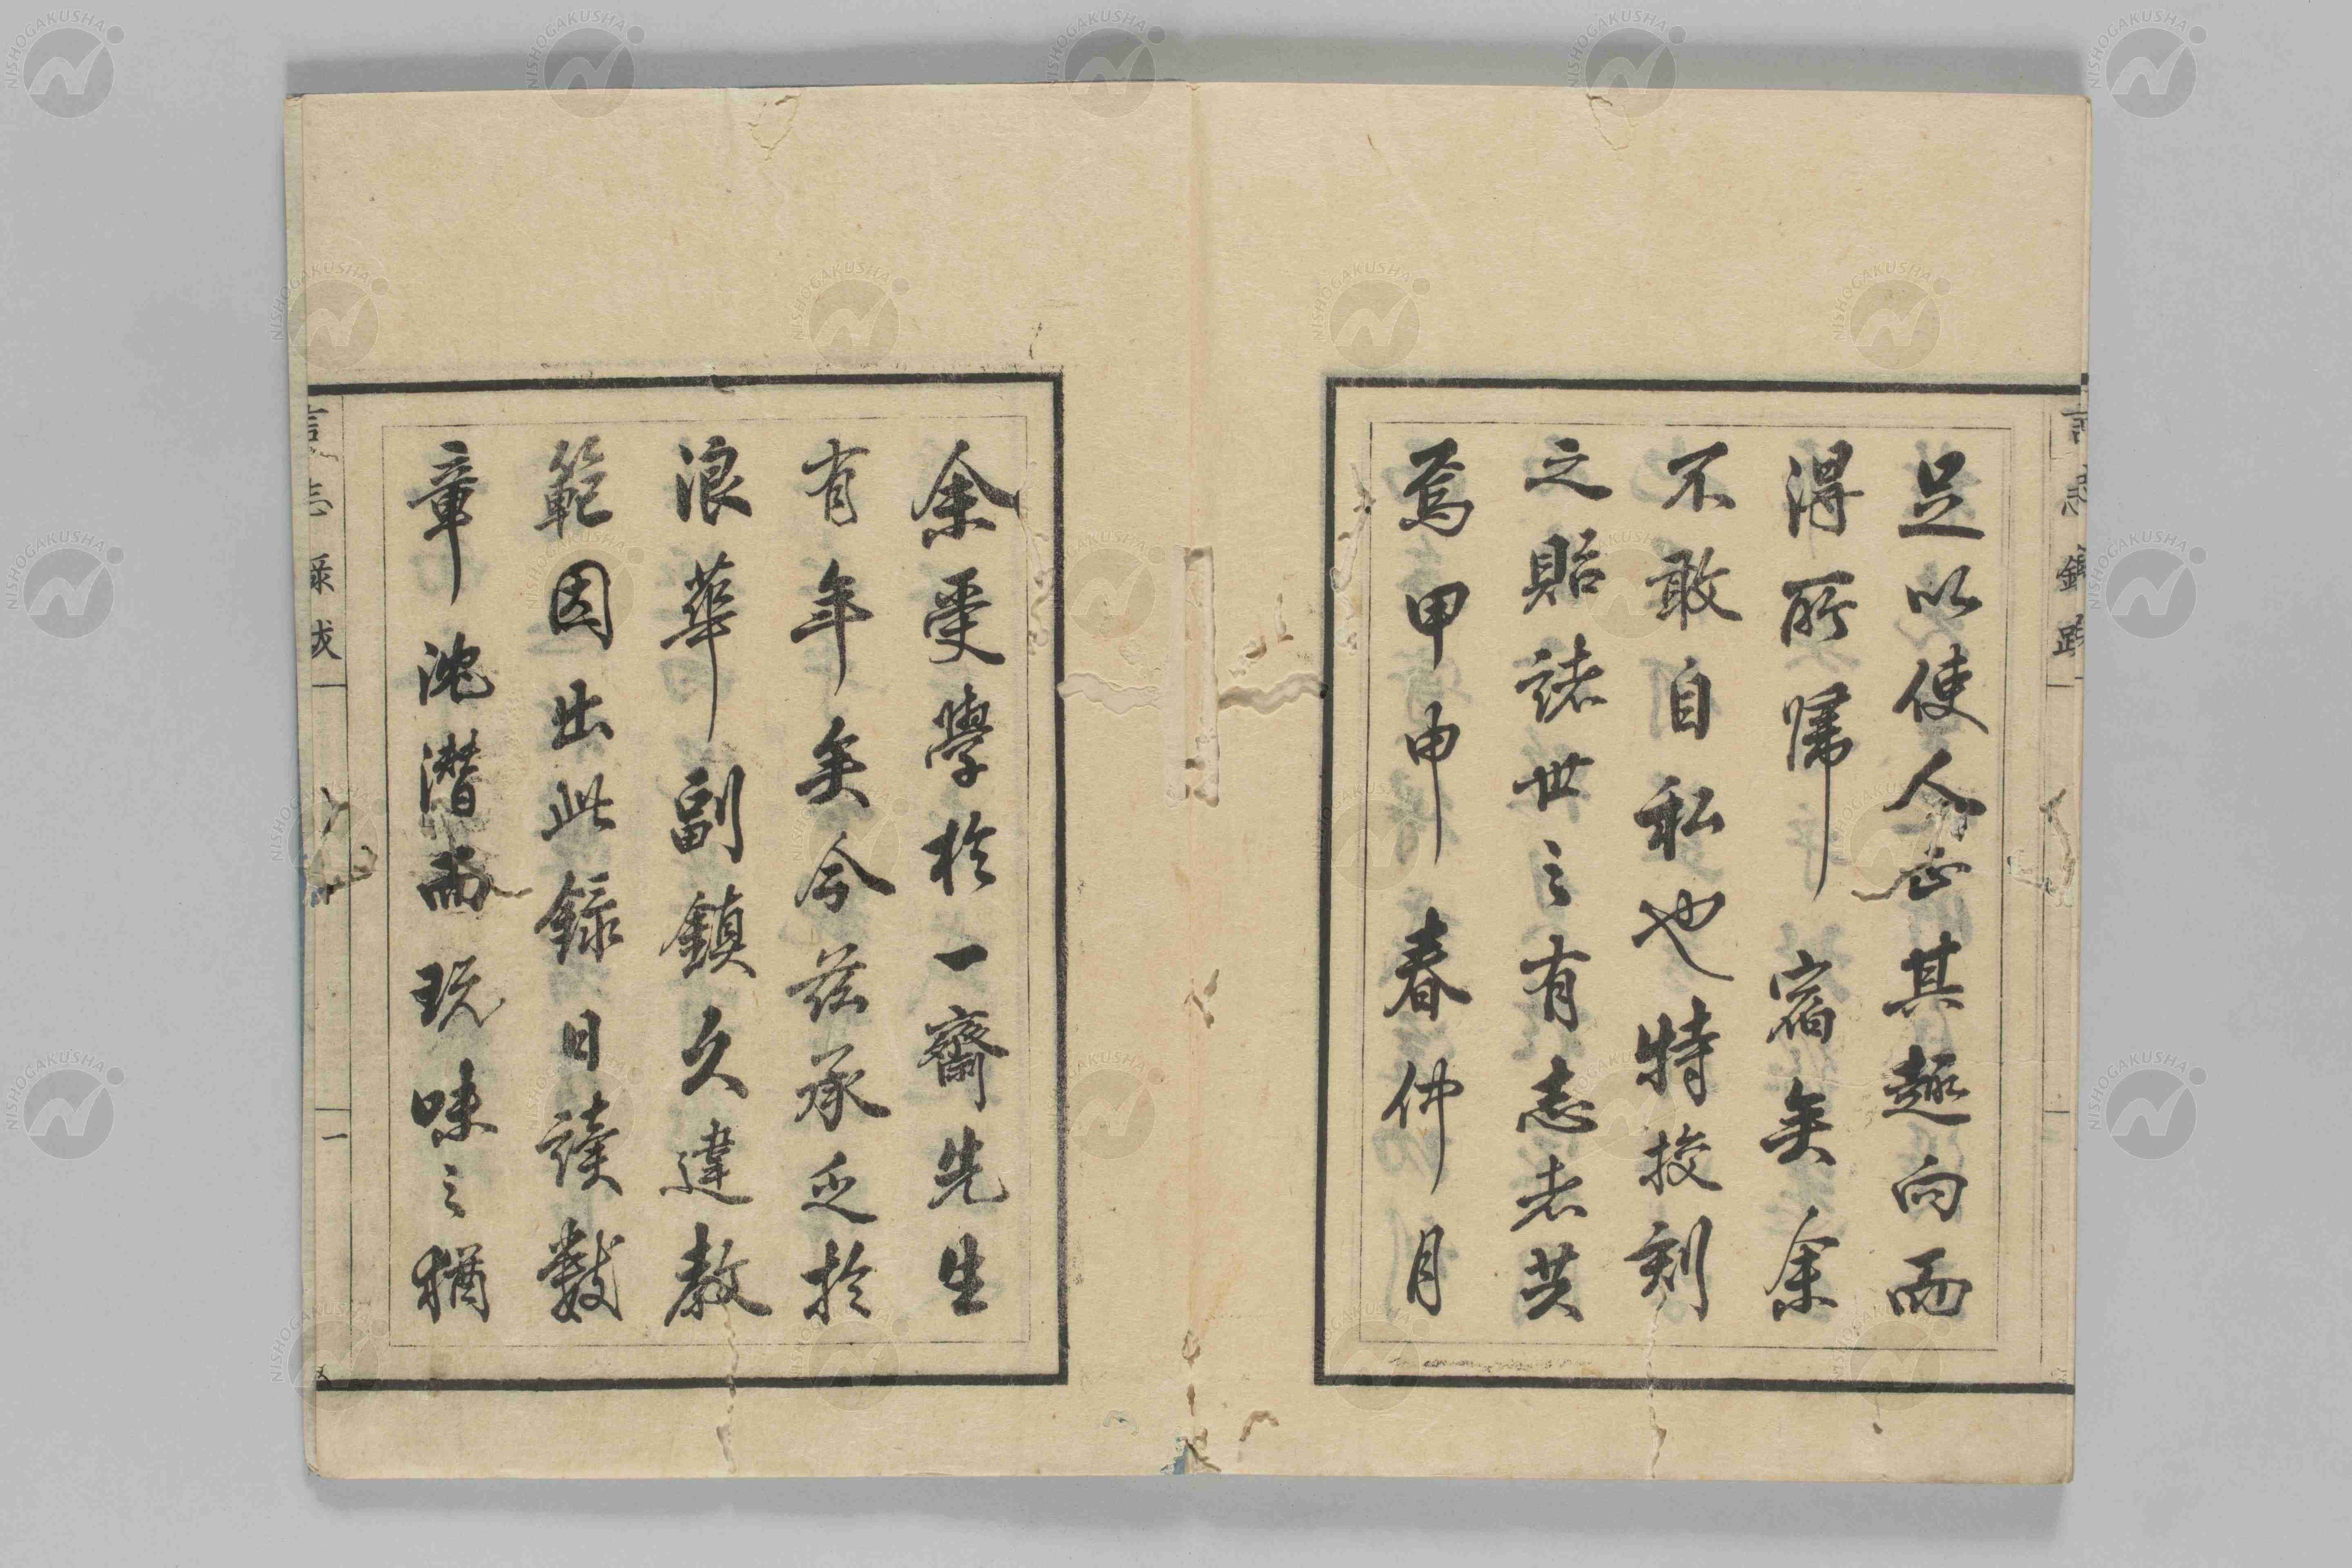 足以使人正其趣向而
得所帰宿矣余
不敢自私也特挍刻
之貽諸世之有志者共
焉甲申春仲月
余受學於一齋先生
有年矣今茲承乏於
浪華副鎮久違教
範因出此錄日讀數
章沈潜而玩味之猶
言志錄跋
一
NISHOGAKUSHA